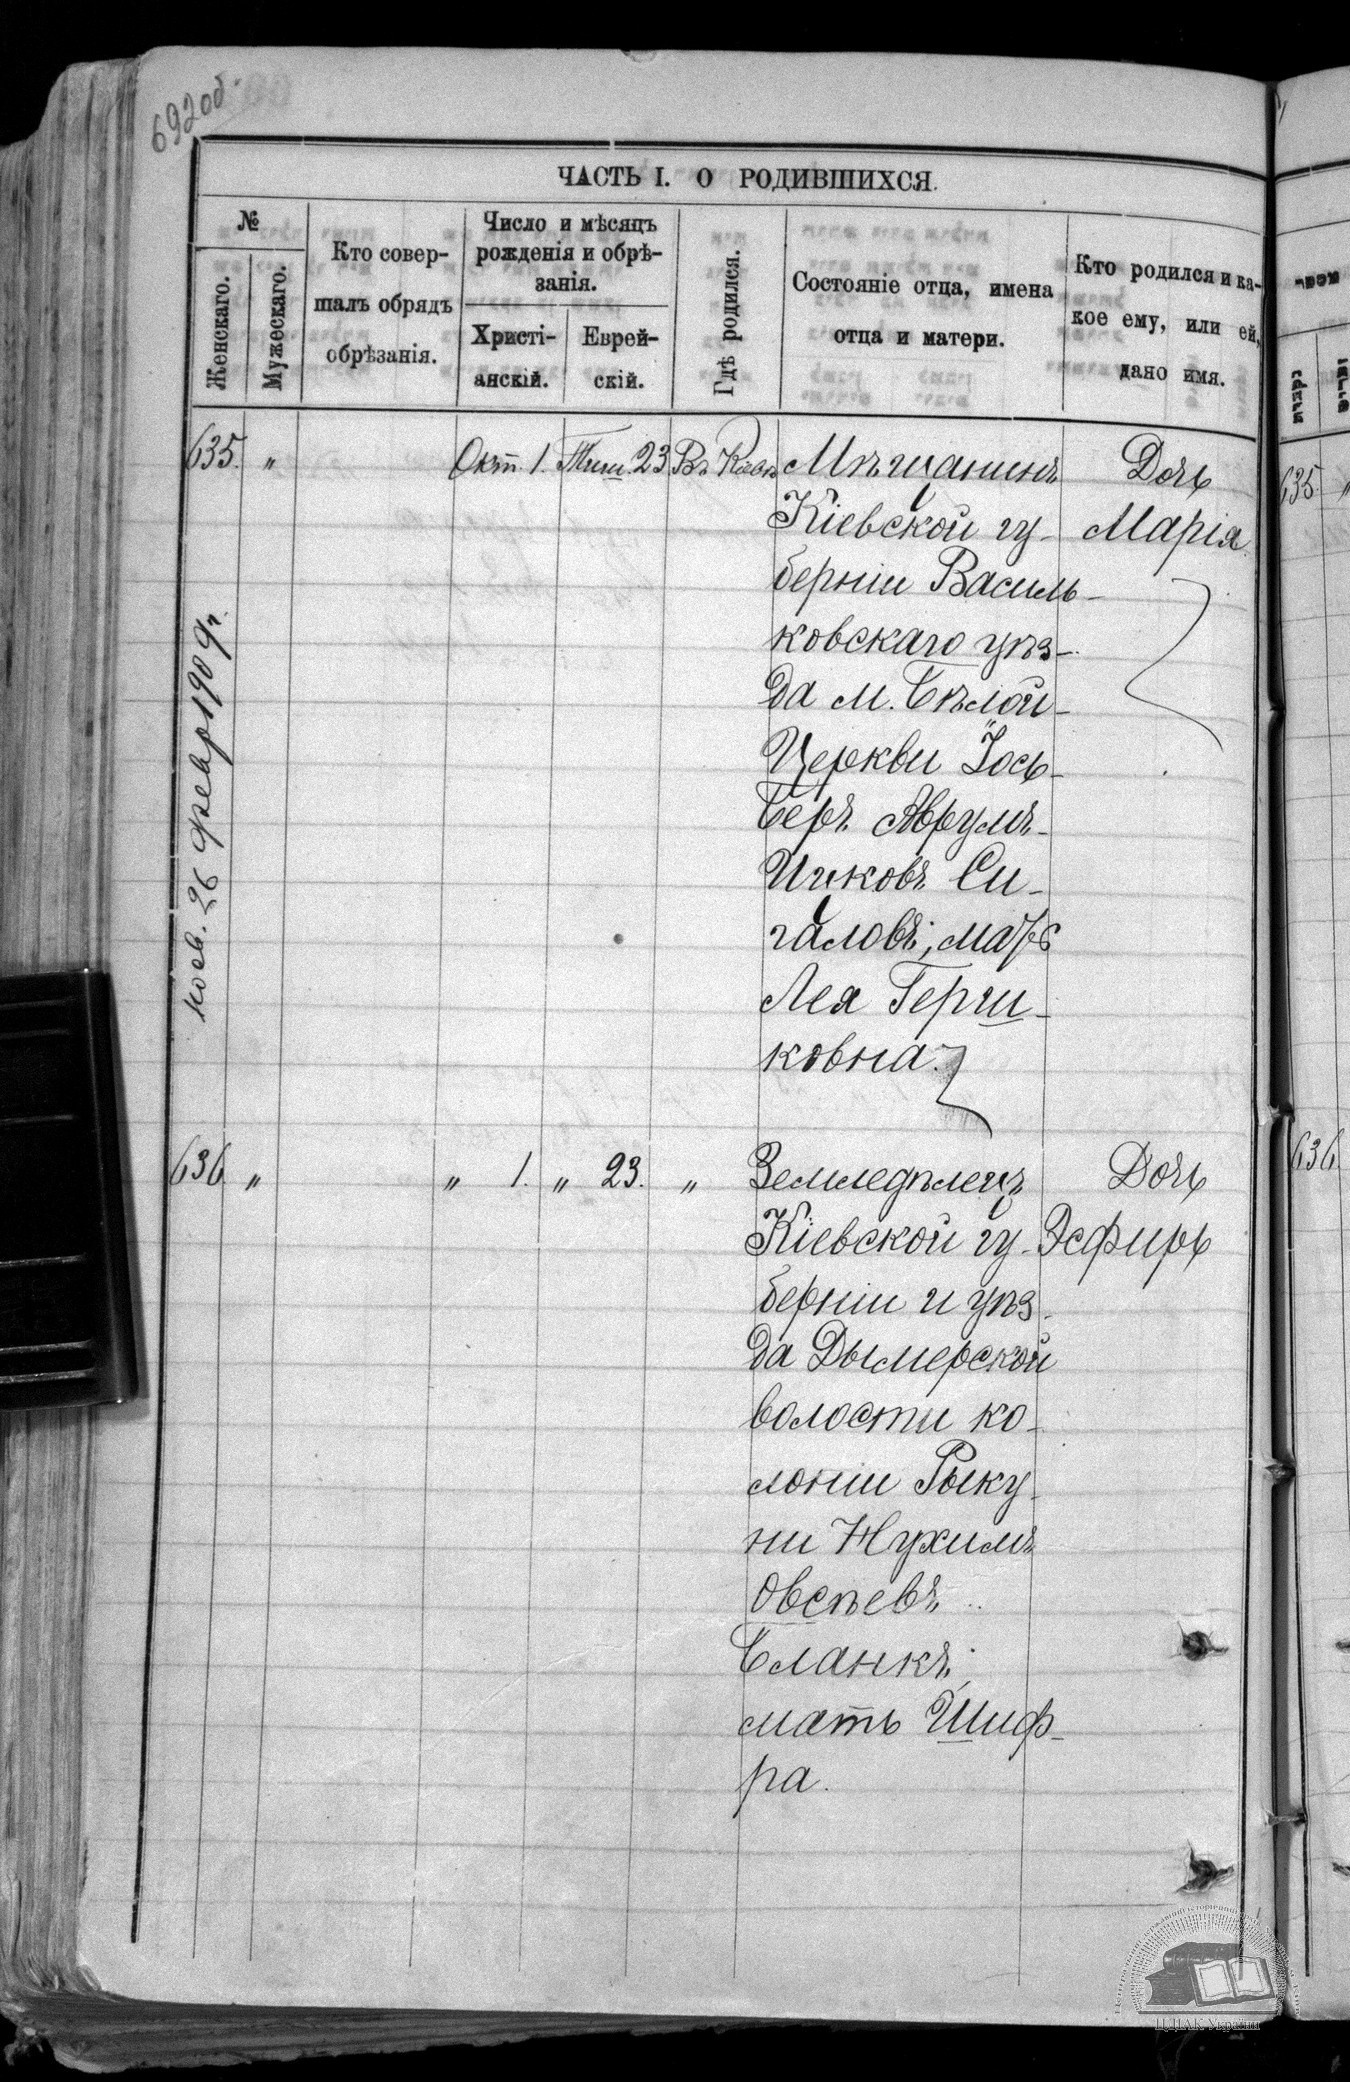 692об.
ЧАСТЬ I. О РОДИВШИХСЯ.
№
Женскаго.
Мужескаго.
Кто совер-
шалъ обрядъ
обрѣзанія.
Число и мѣсяцъ
рожденія и обрѣ-
занія.
Христі-
анскій.
Еврей-
скій.
Гдѣ родился.
Состояніе отца, имена
отца и матери.
Кто родился и ка-
кое ему, или ей,
дано имя.
635. „ Окт. 1. Тиш. 23 Въ Кіевѣ Мѣщанинъ Дочь
Кіевской гу- Марія
берніи Василь-
ковскаго уѣз-
да м. Бѣлой-
Церкви Іось-
Беръ Аврумъ-
Ицковъ Си-
галовъ; мать
Лея Герш-
ковна.
26 февр 1909 г.
636. „ „ 1. „ 23. „ Земледѣлецъ Дочь
Кіевской гу- Эсфирь
берніи и уѣз-
да Дымерской
волости ко-
лоніи Рыку-
ни Нухимъ
Овсѣевъ
Бланкъ;
мать Шиф-
ра.
635. „
636.
ЦДІАК України